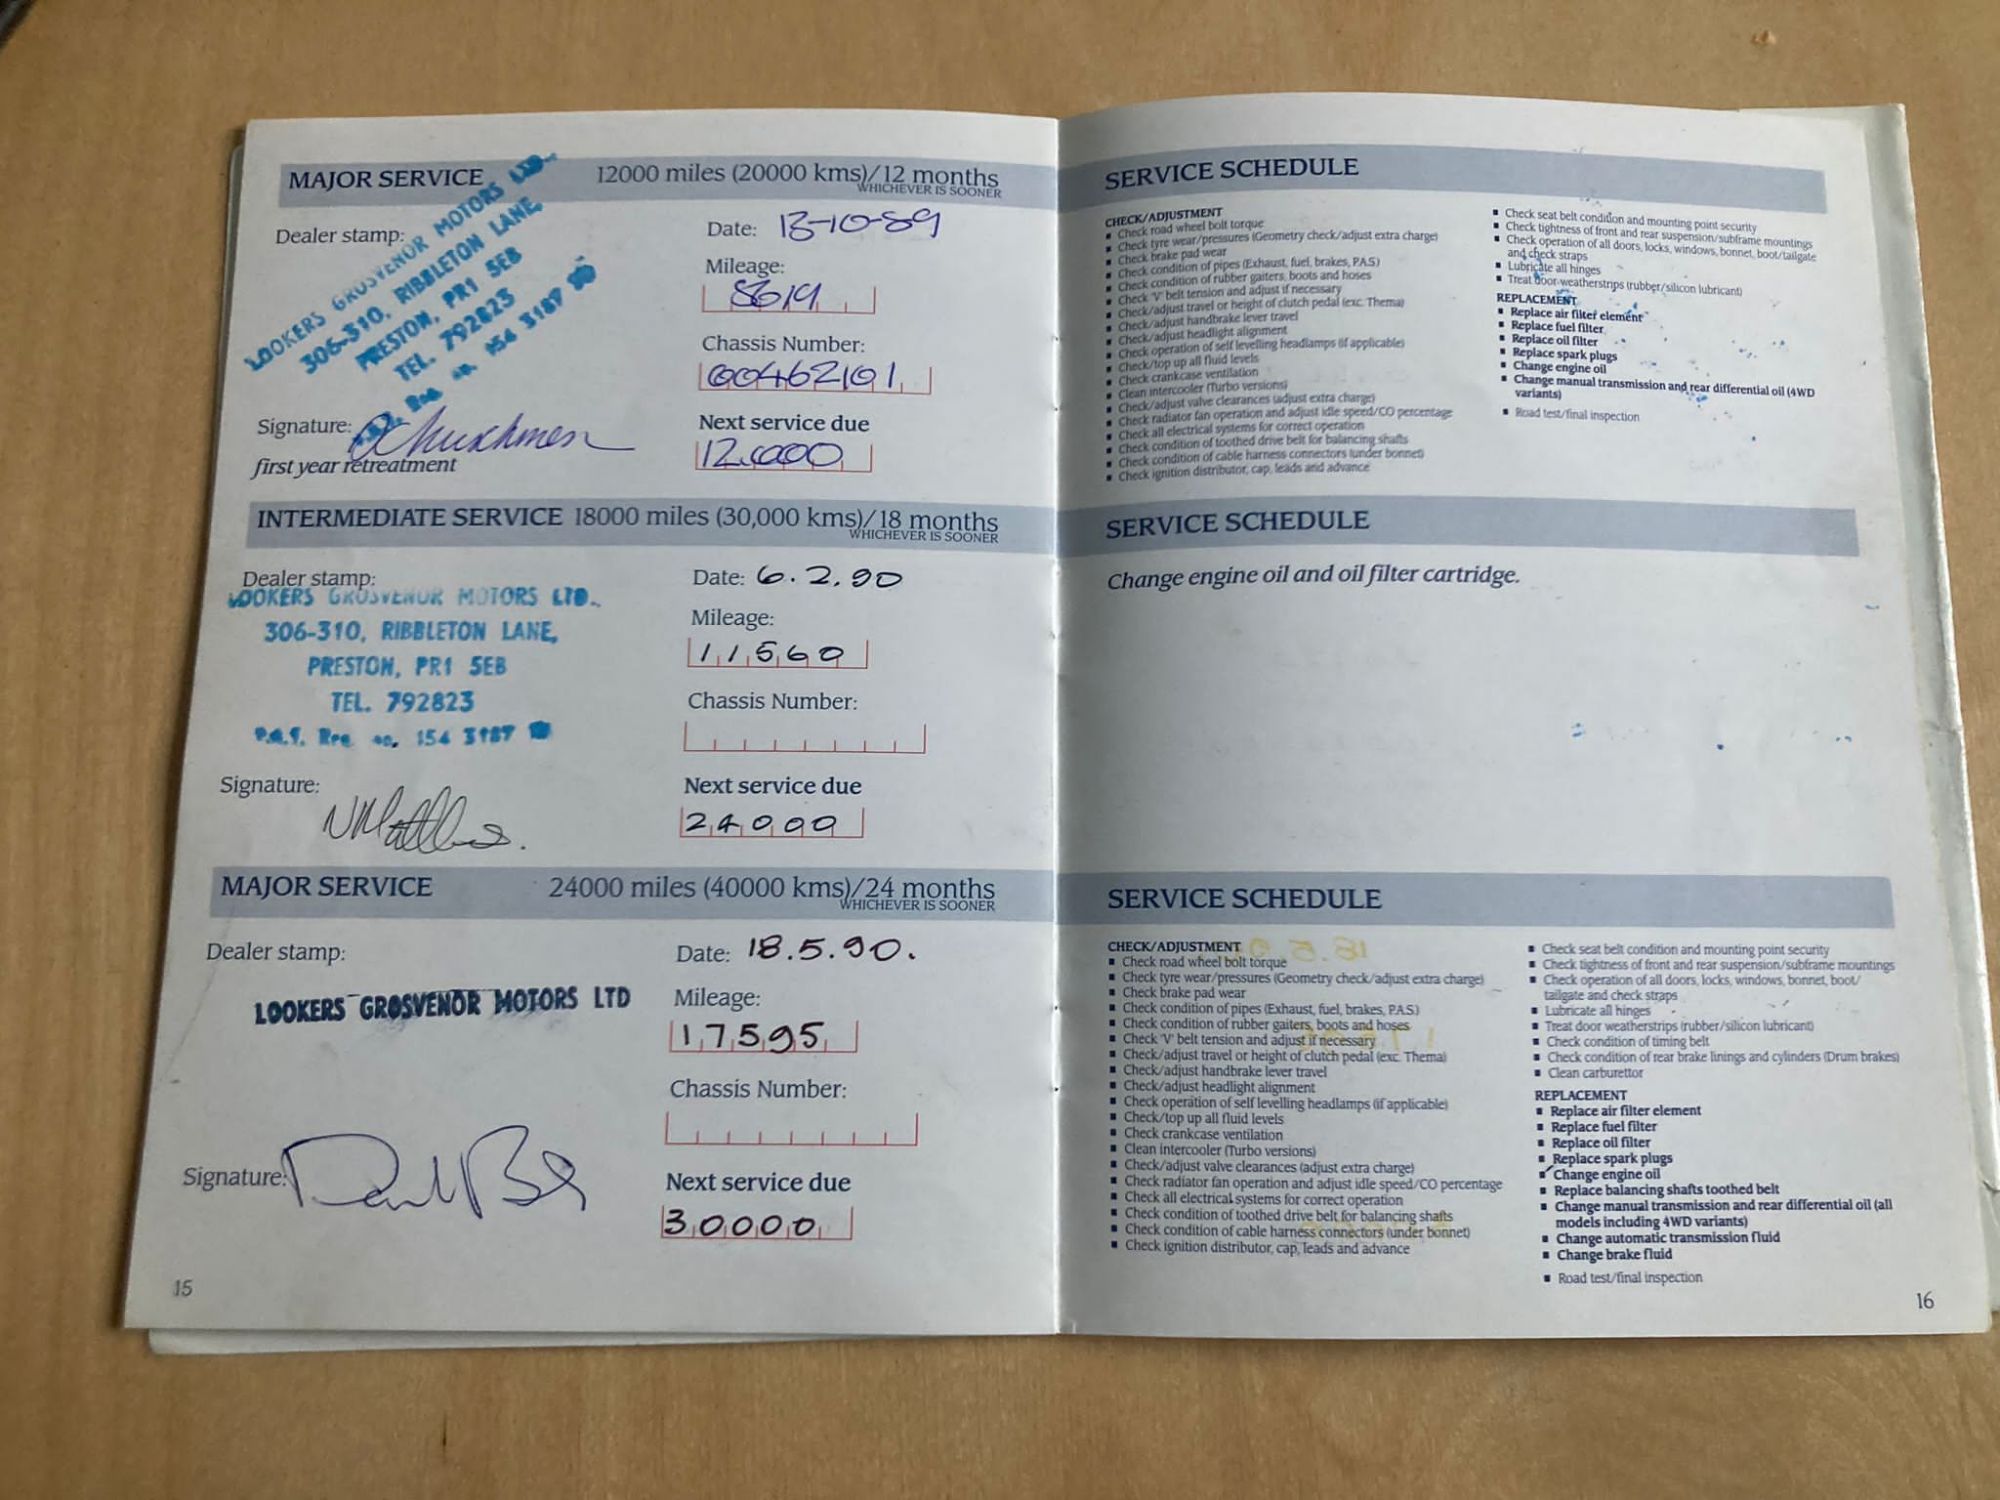 MAJOR SERVICE 12000 miles (20000 kms)/12 months
WHICHEVER IS SOONER
Dealer stamp:
LOOKERS GROSVENOR MOTORS LTD.
306-310, RIBBLETON LANE,
PRESTON, PR1 5EB
TEL. 792823
Reg no. 154 3187
Date: 13-10-89
Mileage:
8619
Chassis Number:
00462101
Signature:
first year retreatment
Next service due
12.000
INTERMEDIATE SERVICE 18000 miles (30,000 kms)/18 months
WHICHEVER IS SOONER
Dealer stamp:
LOOKERS GROSVENOR MOTORS LTD.
306-310, RIBBLETON LANE,
PRESTON, PR1 5EB
TEL. 792823
Reg no. 154 3187
Date: 6.2.90
Mileage:
11560
Chassis Number:
Signature:
Next service due
24000
MAJOR SERVICE 24000 miles (40000 kms)/24 months
WHICHEVER IS SOONER
Dealer stamp:
LOOKERS GROSVENOR MOTORS LTD
Date: 18.5.90.
Mileage:
17595
Chassis Number:
Signature:
Next service due
30000
15
SERVICE SCHEDULE
CHECK/ADJUSTMENT
▪ Check road wheel bolt torque
▪ Check tyre wear/pressures (Geometry check/adjust extra charge)
▪ Check brake pad wear
▪ Check condition of pipes (Exhaust, fuel, brakes, P.A.S.)
▪ Check condition of rubber gaiters, boots and hoses
▪ Check 'V' belt tension and adjust if necessary
▪ Check/adjust travel or height of clutch pedal (exc. Thema)
▪ Check/adjust handbrake lever travel
▪ Check/adjust headlight alignment
▪ Check operation of self levelling headlamps (if applicable)
▪ Check/top up all fluid levels
▪ Check crankcase ventilation
▪ Clean intercooler (Turbo versions)
▪ Check/adjust valve clearances (adjust extra charge)
▪ Check radiator fan operation and adjust idle speed/CO percentage
▪ Check all electrical systems for correct operation
▪ Check condition of toothed drive belt for balancing shafts
▪ Check condition of cable harness connectors (under bonnet)
▪ Check ignition distributor, cap, leads and advance
▪ Check seat belt condition and mounting point security
▪ Check tightness of front and rear suspension/subframe mountings
▪ Check operation of all doors, locks, windows, bonnet, boot/tailgate
and check straps
▪ Lubricate all hinges
▪ Treat door weatherstrips (rubber/silicon lubricant)
REPLACEMENT
▪ Replace air filter element
▪ Replace fuel filter
▪ Replace oil filter
▪ Replace spark plugs
▪ Change engine oil
▪ Change manual transmission and rear differential oil (4WD
variants)
▪ Road test/final inspection
SERVICE SCHEDULE
Change engine oil and oil filter cartridge.
SERVICE SCHEDULE
CHECK/ADJUSTMENT
▪ Check road wheel bolt torque
▪ Check tyre wear/pressures (Geometry check/adjust extra charge)
▪ Check brake pad wear
▪ Check condition of pipes (Exhaust, fuel, brakes, P.A.S.)
▪ Check condition of rubber gaiters, boots and hoses
▪ Check 'V' belt tension and adjust if necessary
▪ Check/adjust travel or height of clutch pedal (exc. Thema)
▪ Check/adjust handbrake lever travel
▪ Check/adjust headlight alignment
▪ Check operation of self levelling headlamps (if applicable)
▪ Check/top up all fluid levels
▪ Check crankcase ventilation
▪ Clean intercooler (Turbo versions)
▪ Check/adjust valve clearances (adjust extra charge)
▪ Check radiator fan operation and adjust idle speed/CO percentage
▪ Check all electrical systems for correct operation
▪ Check condition of toothed drive belt for balancing shafts
▪ Check condition of cable harness connectors (under bonnet)
▪ Check ignition distributor, cap, leads and advance
▪ Check seat belt condition and mounting point security
▪ Check tightness of front and rear suspension/subframe mountings
▪ Check operation of all doors, locks, windows, bonnet, boot/
tailgate and check straps
▪ Lubricate all hinges
▪ Treat door weatherstrips (rubber/silicon lubricant)
▪ Check condition of timing belt
▪ Check condition of rear brake linings and cylinders (Drum brakes)
▪ Clean carburettor
REPLACEMENT
▪ Replace air filter element
▪ Replace fuel filter
▪ Replace oil filter
▪ Replace spark plugs
▪ Change engine oil
▪ Replace balancing shafts toothed belt
▪ Change manual transmission and rear differential oil (all
models including 4WD variants)
▪ Change automatic transmission fluid
▪ Change brake fluid
▪ Road test/final inspection
16